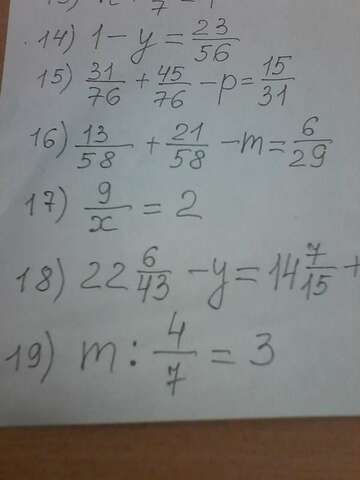 14) 1 - y = 23/56
15) 31/76 + 45/76 - p = 15/31
16) 13/58 + 21/58 - m = 6/29
17) 9/x = 2
18) 22 6/43 - y = 14 7/15 +
19) m : 4/7 = 3